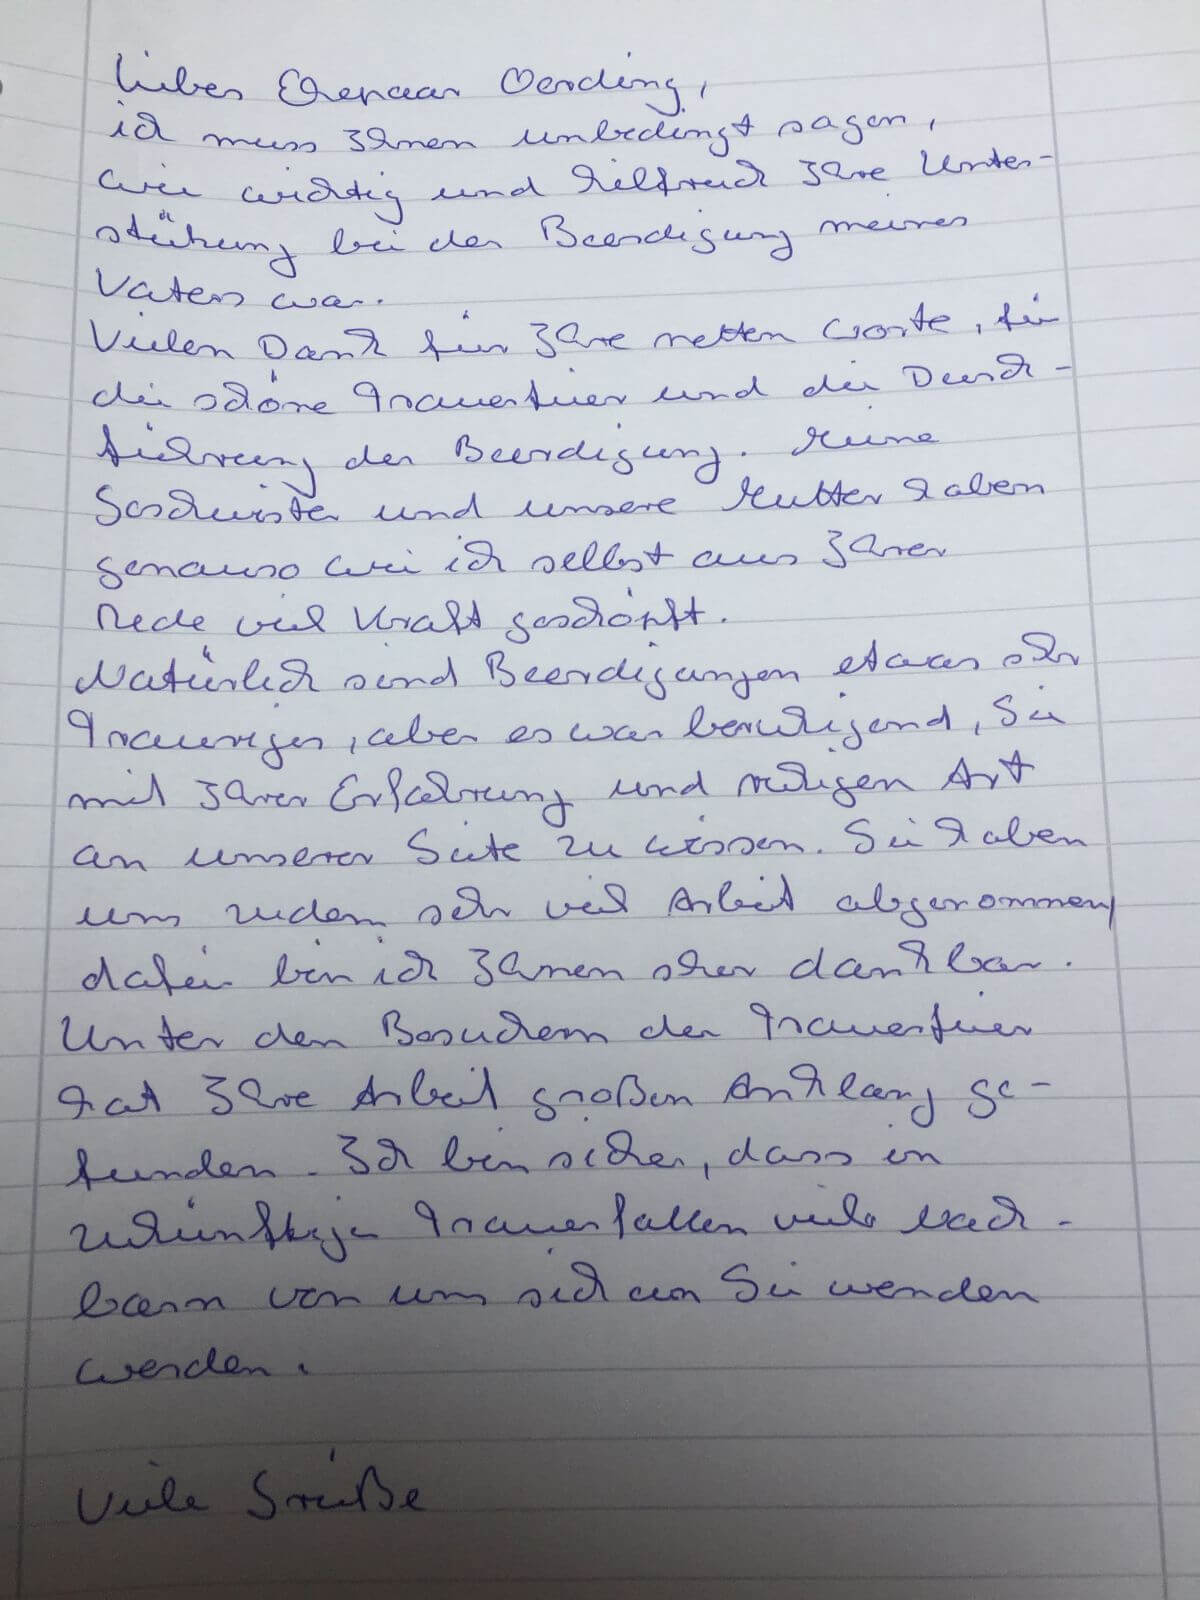 Liebes Ehepaar Oerding,
ich muss Ihnen unbedingt sagen,
wie wichtig und hilfreich Ihre Unter-
stützung bei der Beerdigung meines
Vaters war.
Vielen Dank für Ihre netten Worte, für
die schöne Trauerfeier und die Durch-
führung der Beerdigung. Meine
Geschwister und unsere Mutter haben
genauso wie ich selbst aus Ihrer
Rede viel Kraft geschöpft.
Natürlich sind Beerdigungen etwas sehr
Trauriges, aber es war beruhigend, Sie
mit Ihrer Erfahrung und ruhigen Art
an unserer Seite zu wissen. Sie haben
uns zudem sehr viel Arbeit abgenommen,
dafür bin ich Ihnen sehr dankbar.
Unter den Besuchern der Trauerfeier
hat Ihre Arbeit großen Anklang ge-
funden. Ich bin sicher, dass in
zukünftigen Trauerfällen viele Nach-
barn von uns sich an Sie wenden
werden.
Viele Grüße